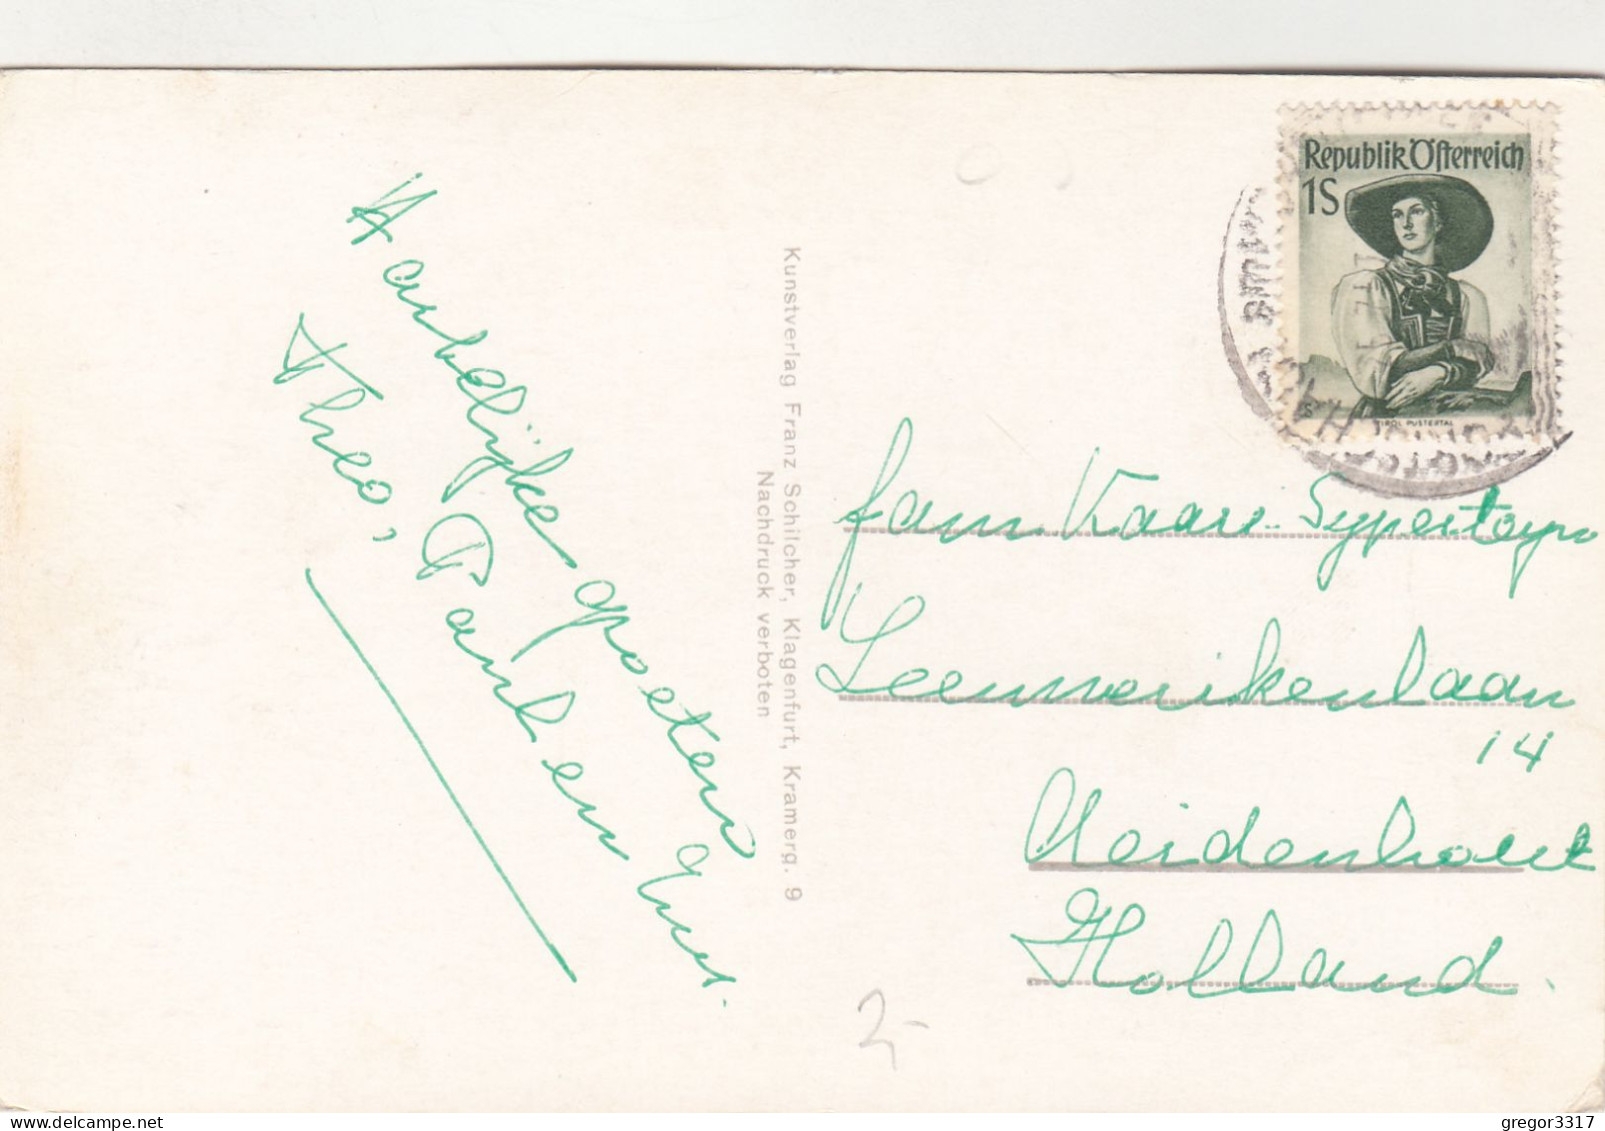 Hartelijke groeten
Theo, Paul en
Kunstverlag Franz Schilcher, Klagenfurt, Kramerg. 9
Nachdruck verboten
Republik Österreich
1S
TIROL PUSTERTAL
fam. Kaars-Sypesteyn
Leeuwerikenlaan
14
Heidenhoek
Holland.
2,-
gregor3317